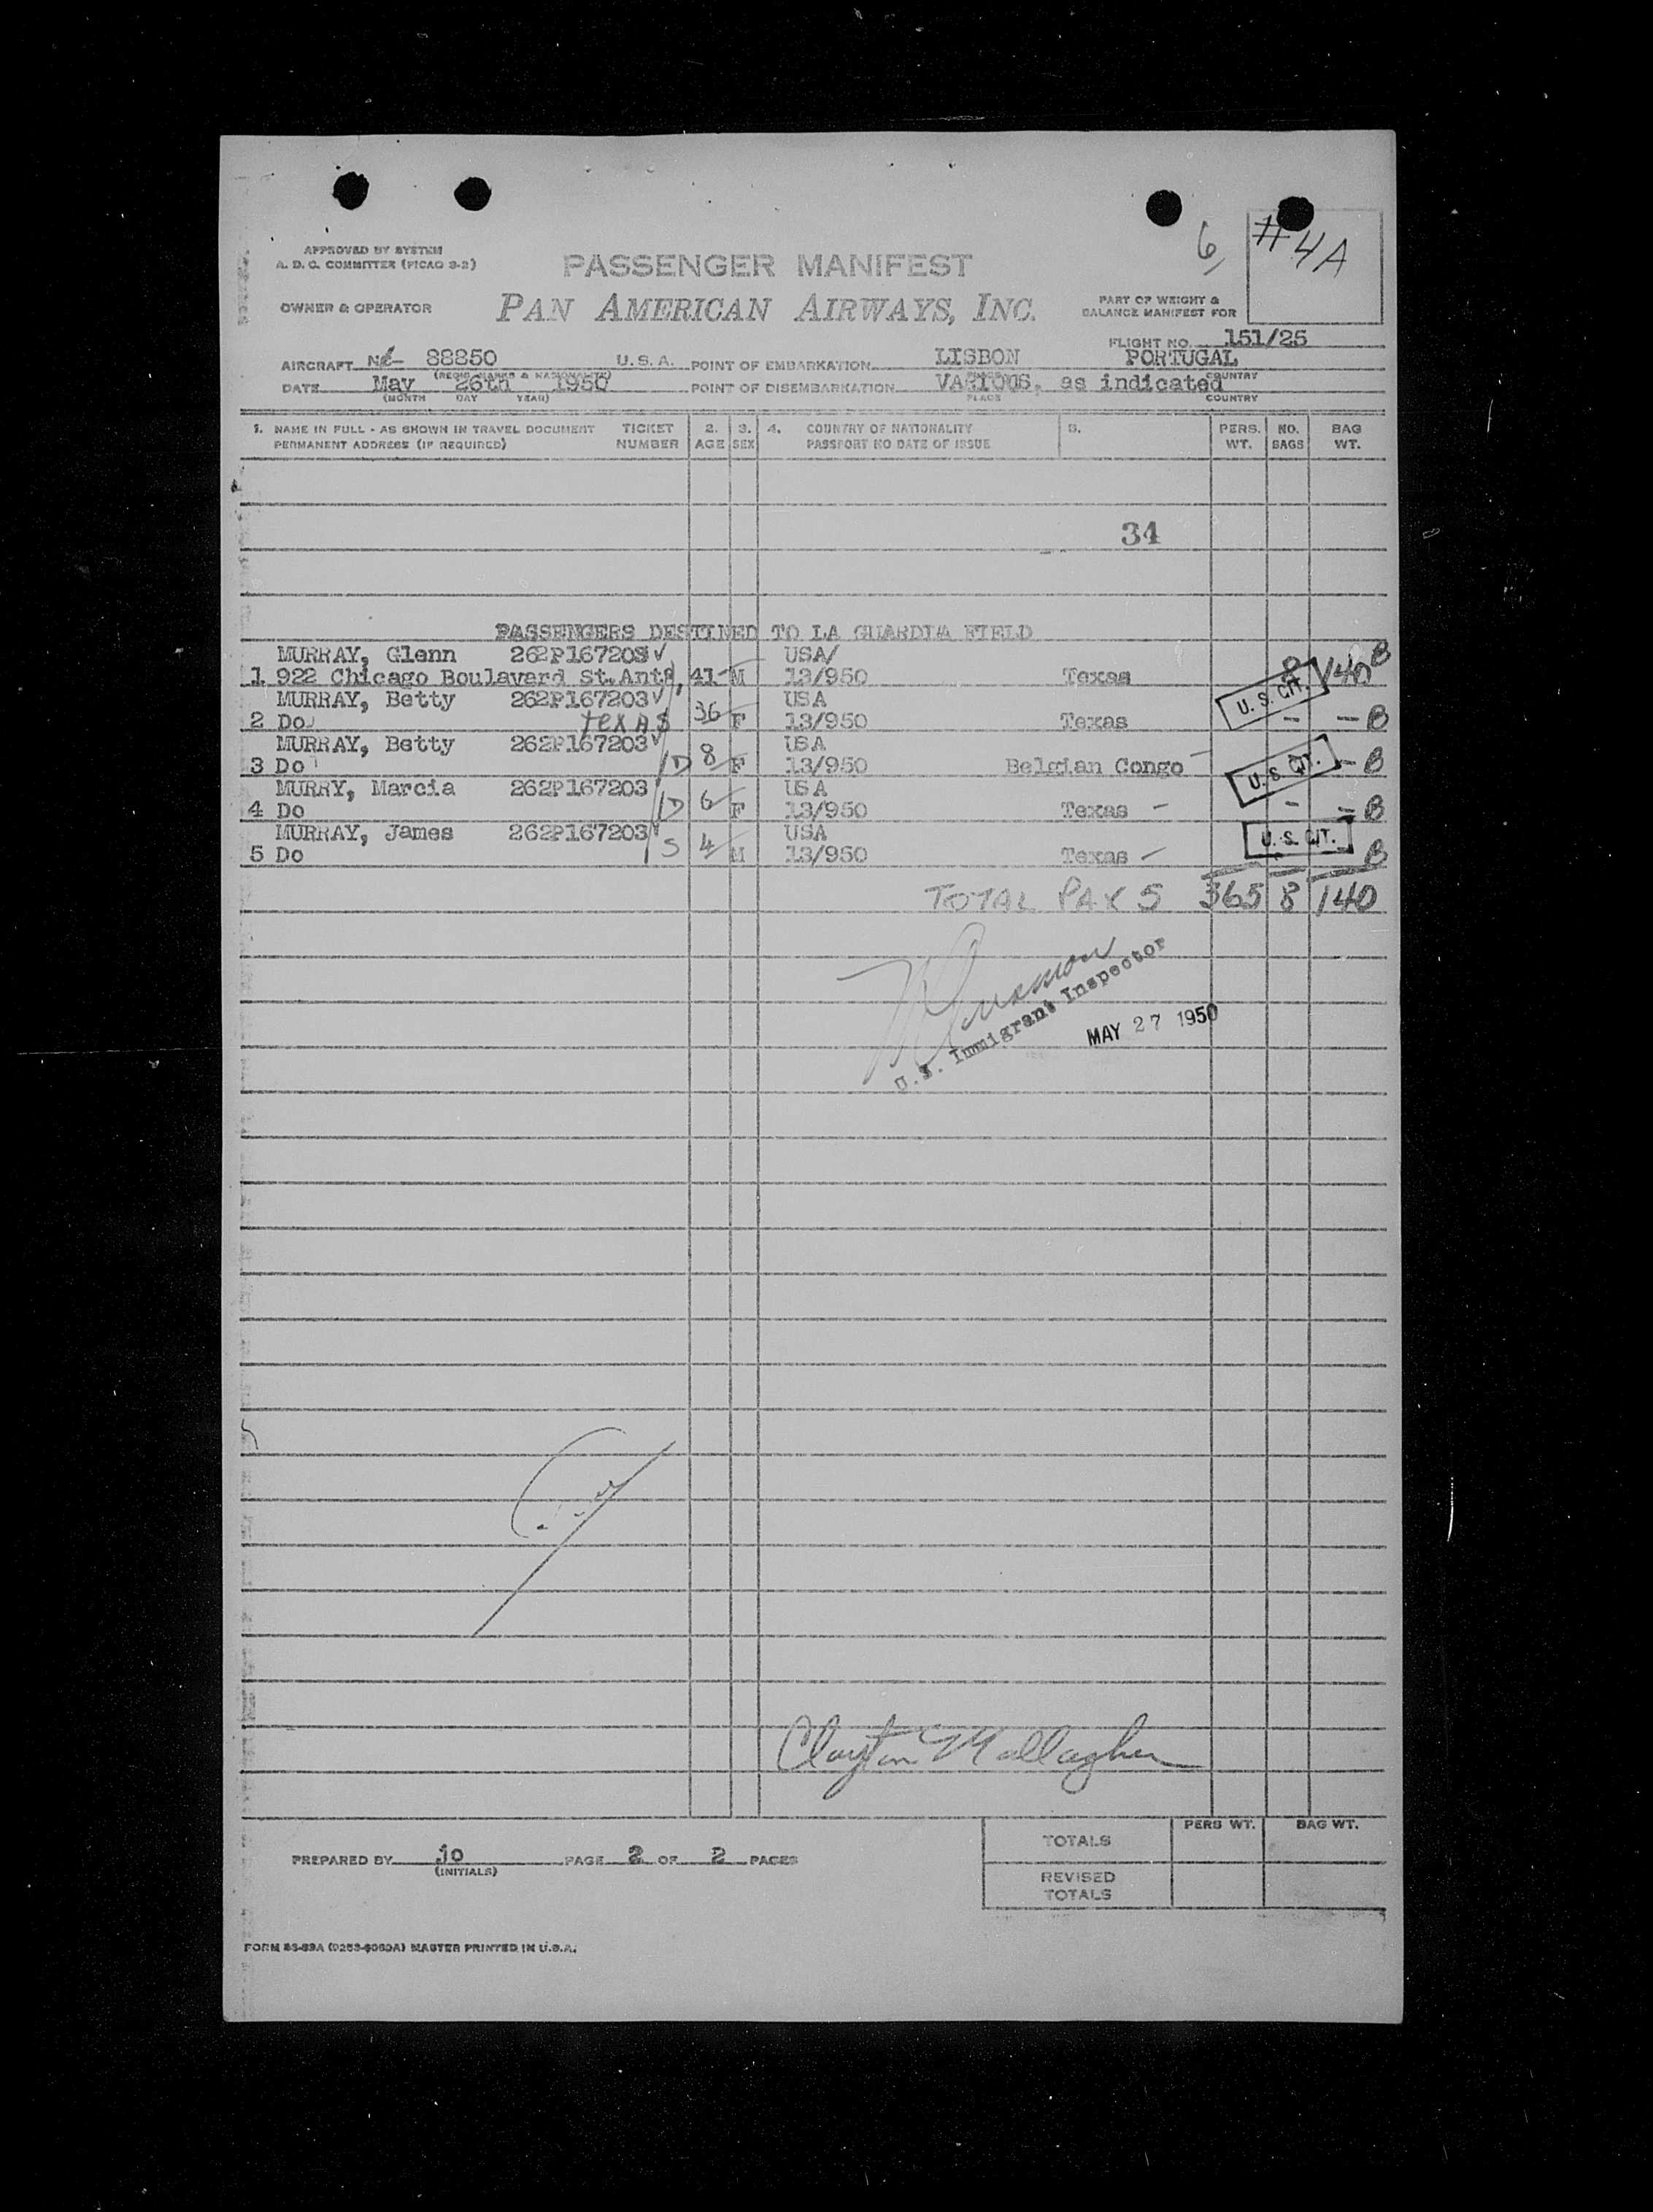 6
#4A
APPROVED BY SYSTEM
A. D. C. COMMITTEE (PICAO 9-2)
PASSENGER MANIFEST
OWNER & OPERATOR
PAN AMERICAN AIRWAYS, INC.
PART OF WEIGHT &
BALANCE MANIFEST FOR
FLIGHT NO. 151/25
AIRCRAFT 88850 U. S. A. POINT OF EMBARKATION LISBON PORTUGAL
(REGIS. MARKS & NATIONALITY) PLACE COUNTRY
DATE May 26th 1950 POINT OF DISEMBARKATION VARIOUS, as indicated
(MONTH DAY YEAR) PLACE COUNTRY
1. NAME IN FULL - AS SHOWN IN TRAVEL DOCUMENT TICKET 2. 3. 4. COUNTRY OF NATIONALITY 5. PERS. NO. BAG
PERMANENT ADDRESS (IF REQUIRED) NUMBER AGE SEX PASSPORT NO DATE OF ISSUE WT. BAGS WT.
34
PASSENGERS DESTINED TO LA GUARDIA FIELD
MURRAY, Glenn 262P167203 USA B
1 922 Chicago Boulavard St.Anto, 41 M 13/950 Texas 8 140
MURRAY, Betty 262P167203 USA U. S. CIT.
2 Do texas 36 F 13/950 Texas - - B
MURRAY, Betty 262P167203 USA
3 Do D 8 F 13/950 Belgian Congo U. S. CIT. - B
MURRY, Marcia 262P167203 USA
4 Do D 6 F 13/950 Texas - - - B
MURRAY, James 262P167203 USA U. S. CIT.
5 Do S 4 M 13/950 Texas - B
TOTAL PAX 5 365 8 140
U.S. Immigrant Inspector
MAY 27 1950
Clayton
PREPARED BY jo PAGE 2 OF 2 PAGES
(INITIALS)
PERS WT. BAG WT.
TOTALS
REVISED
TOTALS
MASTER PRINTED IN U.S.A.